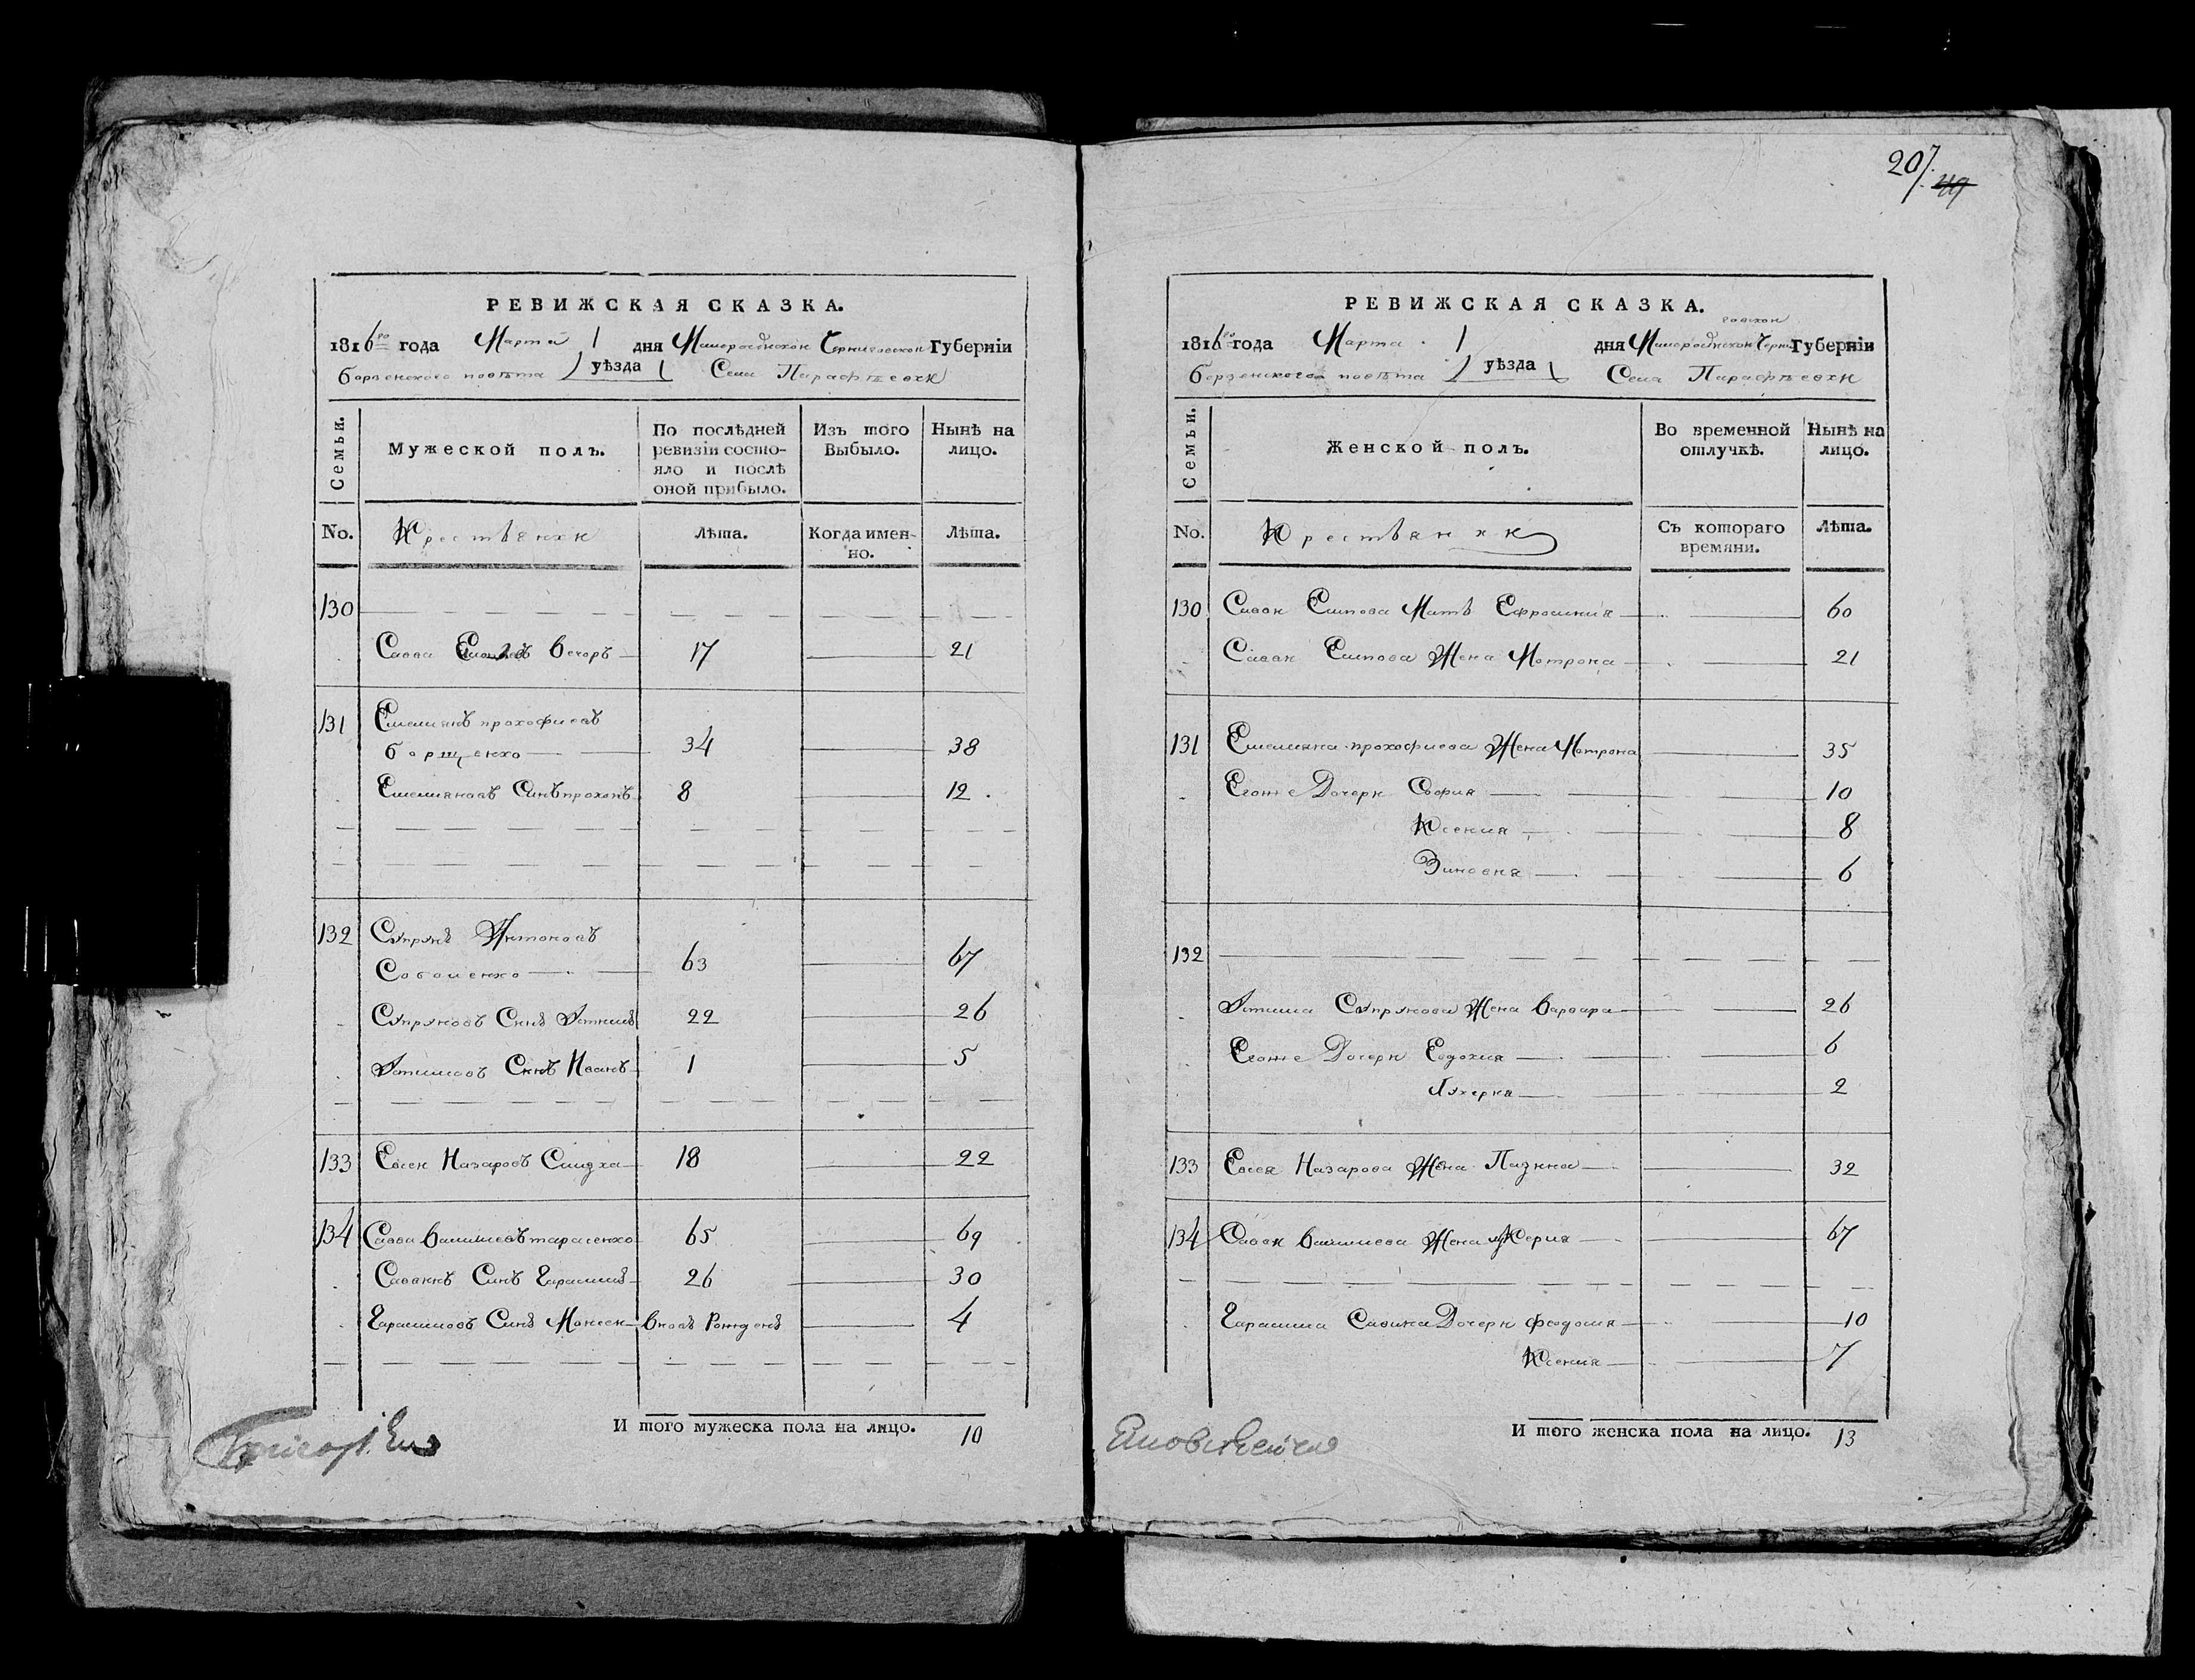 РЕВИЖСКАЯ СКАЗКА.
1816го года Марта 1 дня Малоросійской Черниговской Губерніи
борзенского повѣта уѣзда Села Парафѣевки
Семьи.
Мужеской полъ.
По послѣдней ревизіи состояло и послѣ оной прибыло.
Изъ того Выбыло.
Нынѣ на лицо.
No. Крестьяни Лѣта. Когда именно. Лѣта.
130
Сава вечоръ 17 21
131 Емелианъ прокофиевъ
борщенко 34 38
Емелиановъ Синъ прокопъ 8 12
132 Супрунъ Антоновъ
63 67
Супруновъ Синъ 22 26
Синъ Иванъ 1 5
133 Евсей Назаровъ 18 22
134 Сава василиевъ тарасенко 65 69
Савинъ Синъ Герасимъ 26 30
Герасимовъ Синъ Моисей вновъ Рожденъ 4
И того мужеска пола на лицо. 10
207
49
РЕВИЖСКАЯ СКАЗКА.
1816го года Марта 1 дня Малоросійской Черниговской Губерніи
борзенского повѣта уѣзда Села Парафѣевки
Семьи.
Женской полъ.
Во временной отлучкѣ.
Нынѣ на лицо.
No. Крестьянки Съ котораго времяни. Лѣта.
130 Савы Есипова Мать Ефросиния 60
Савы Есипова Жена Мотрона 21
131 Емелиана прокофиева Жена Мотрона 35
Егоже Дочери София 10
Ксения 8
Зиновия 6
132
Супрунова Жена варвара 26
Егоже Дочери Евдокия 6
Лукерия 2
133 Евсея Назарова Жена 32
134 Савы василиева Жена 67
Герасима Савина Дочери феодосия 10
Ксения 7
И того женска пола на лицо. 13